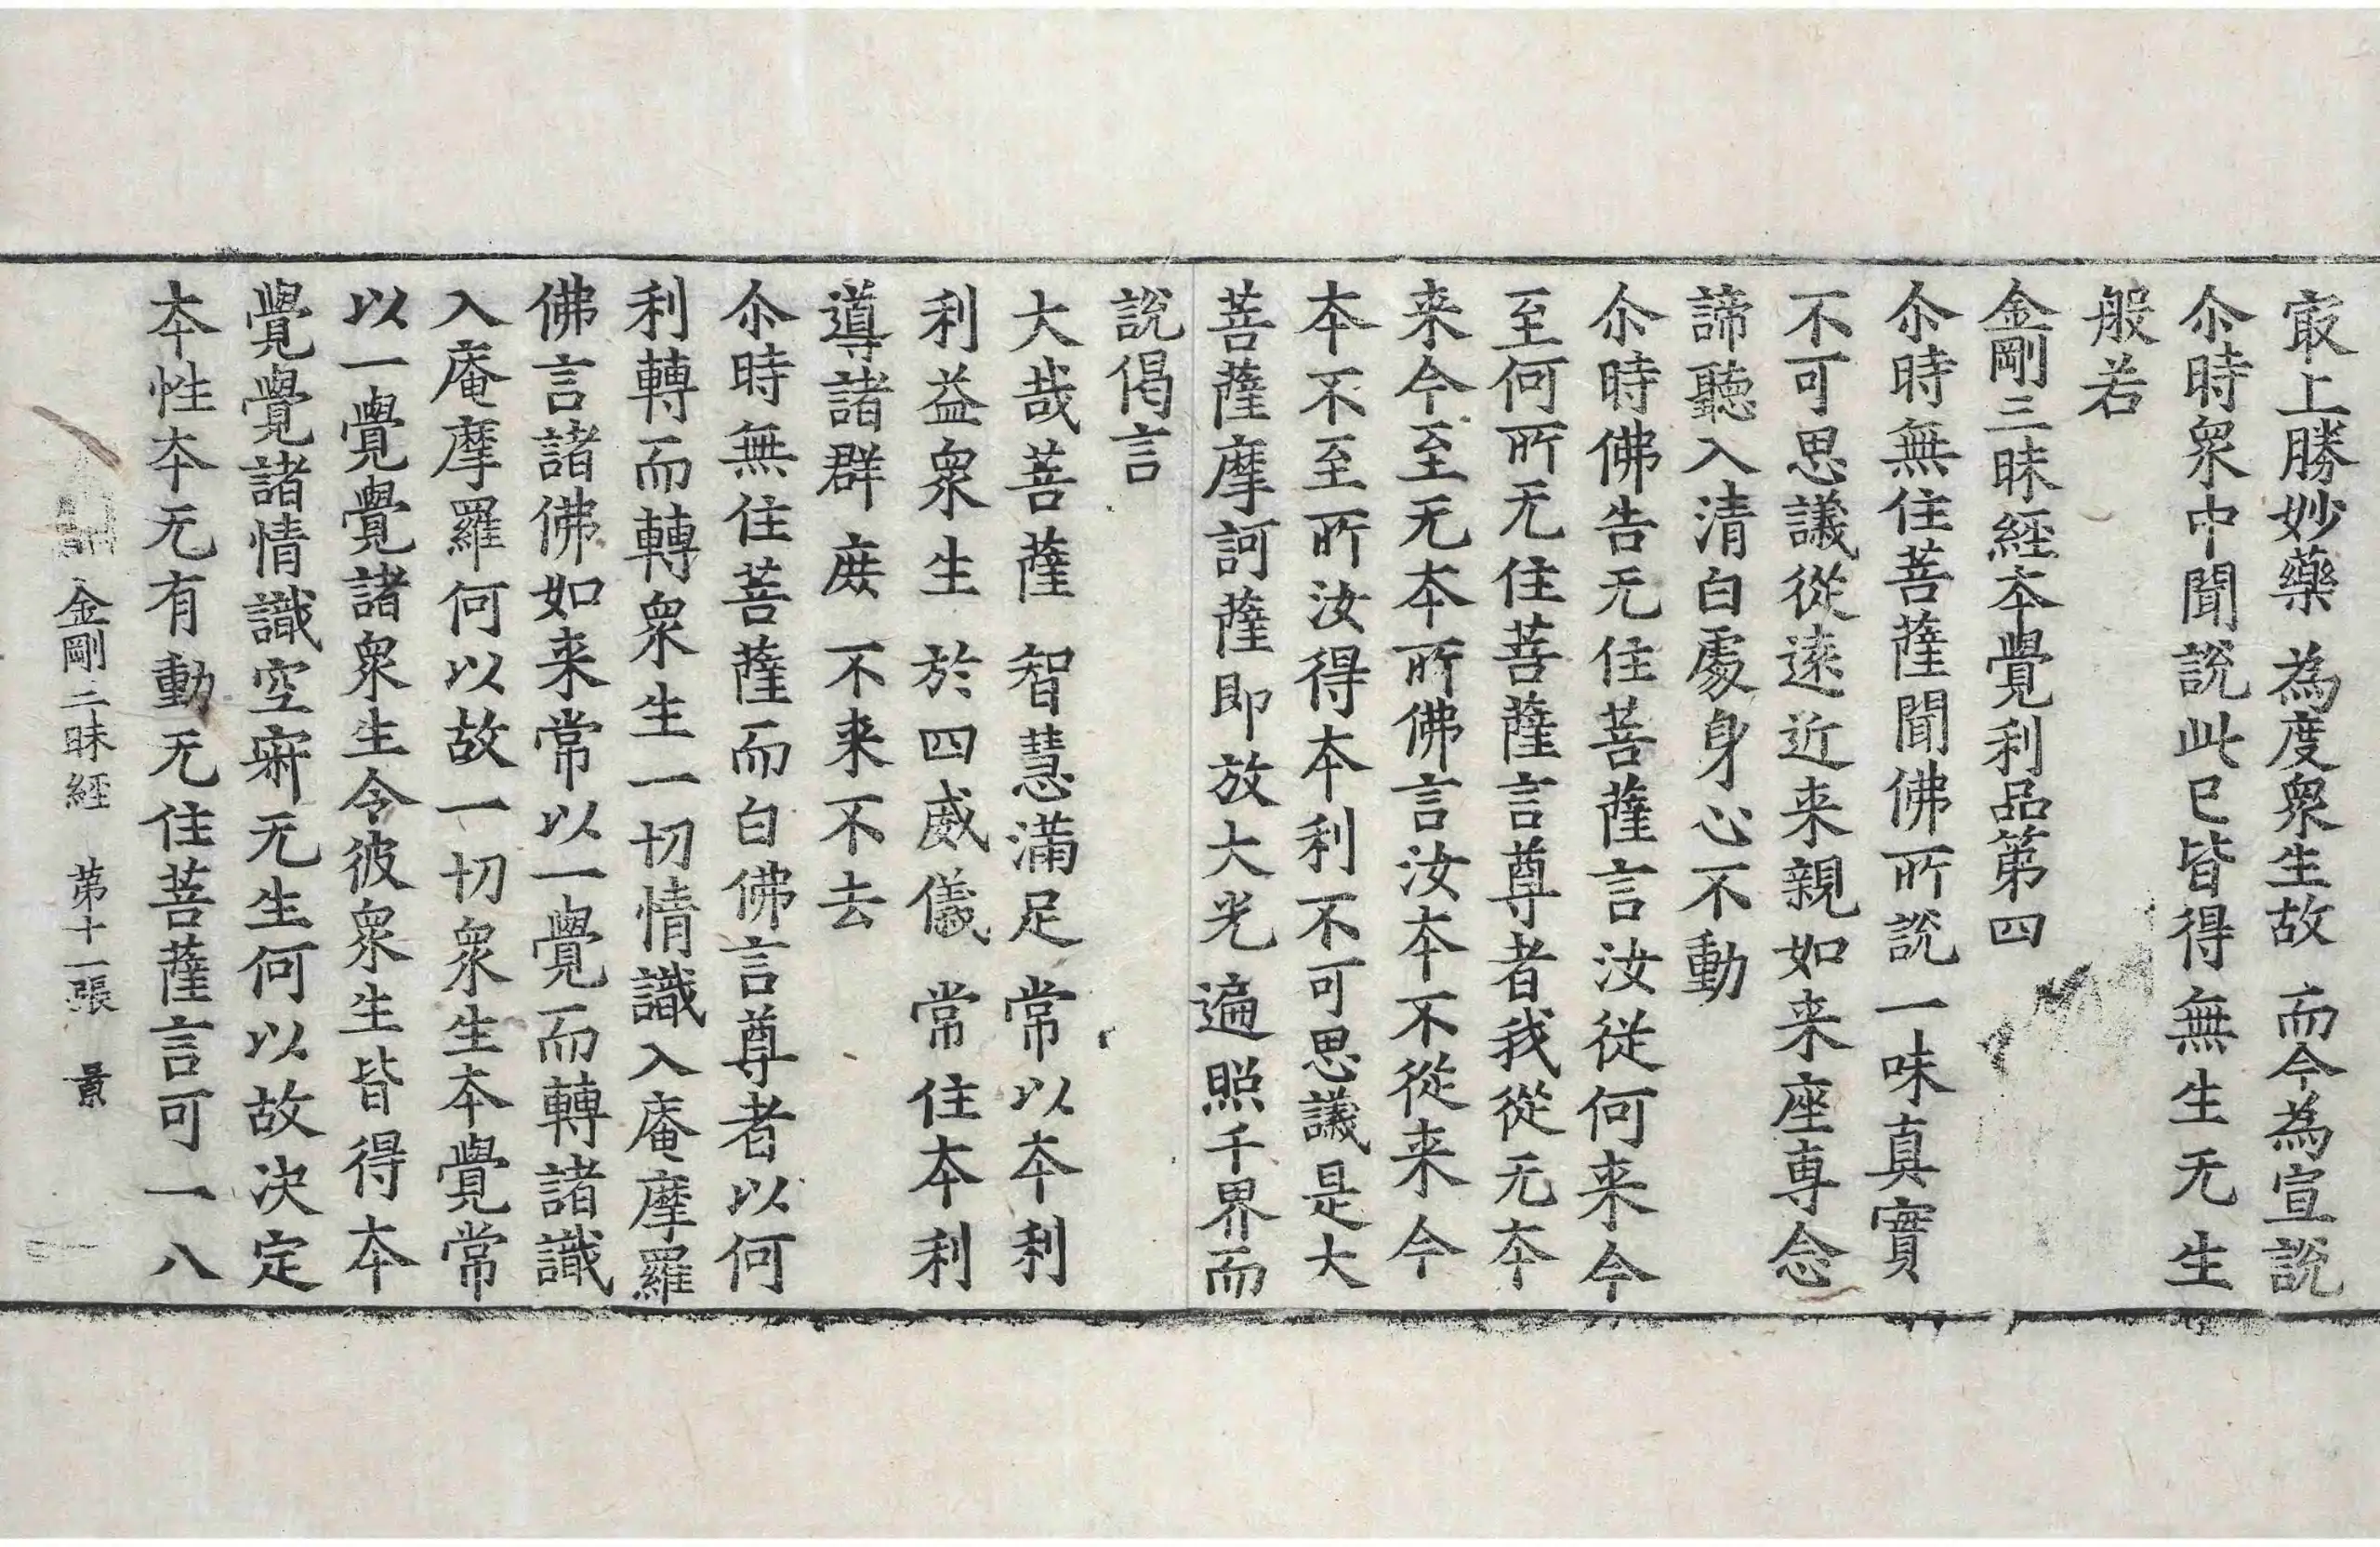 㝡上勝妙藥 為度衆生故 而今為宣說
尒時衆中聞說此已皆得無生无生
般若
金剛三昧經本覺利品第四
尒時無住菩薩聞佛所說一味真實
不可思議從遠近来親如来座專念
諦聽入清白處身心不動
尒時佛告无住菩薩言汝從何来今
至何所无住菩薩言尊者我從无本
来今至无本所佛言汝本不從来今
本不至所汝得本利不可思議是大
菩薩摩訶薩即放大光遍照千界而
說偈言
大哉菩薩 智慧滿足 常以本利
利益衆生 於四威儀 常住本利
導諸群庶 不来不去
尒時無住菩薩而白佛言尊者以何
利轉而轉衆生一切情識入庵摩羅
佛言諸佛如来常以一覺而轉諸識
入庵摩羅何以故一切衆生本覺常
以一覺覺諸衆生令彼衆生皆得本
覺覺諸情識空寂无生何以故决定
本性本无有動无住菩薩言可一八
金剛三昧經 第十一張 景